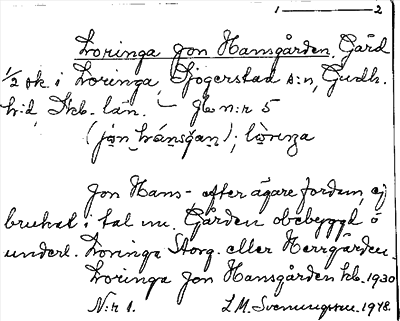 1 — 2
Loringa Jon Hansgården. Gård
1/2 ok. i Loringa, Sjogerstad s:n, Gudh.
h:d, Skb. län. — Jb n:r 5
(jon hánsgan); lòrinza
Jon Hans- efter ägare fordom, ej
brukat i tal nu. Gården obebyggd o
underl. Loringa Storg. eller Herrgården.
Loringa Jon Hansgården kb. 1930
N:r 1. L.M. Svenungsson. 1948.